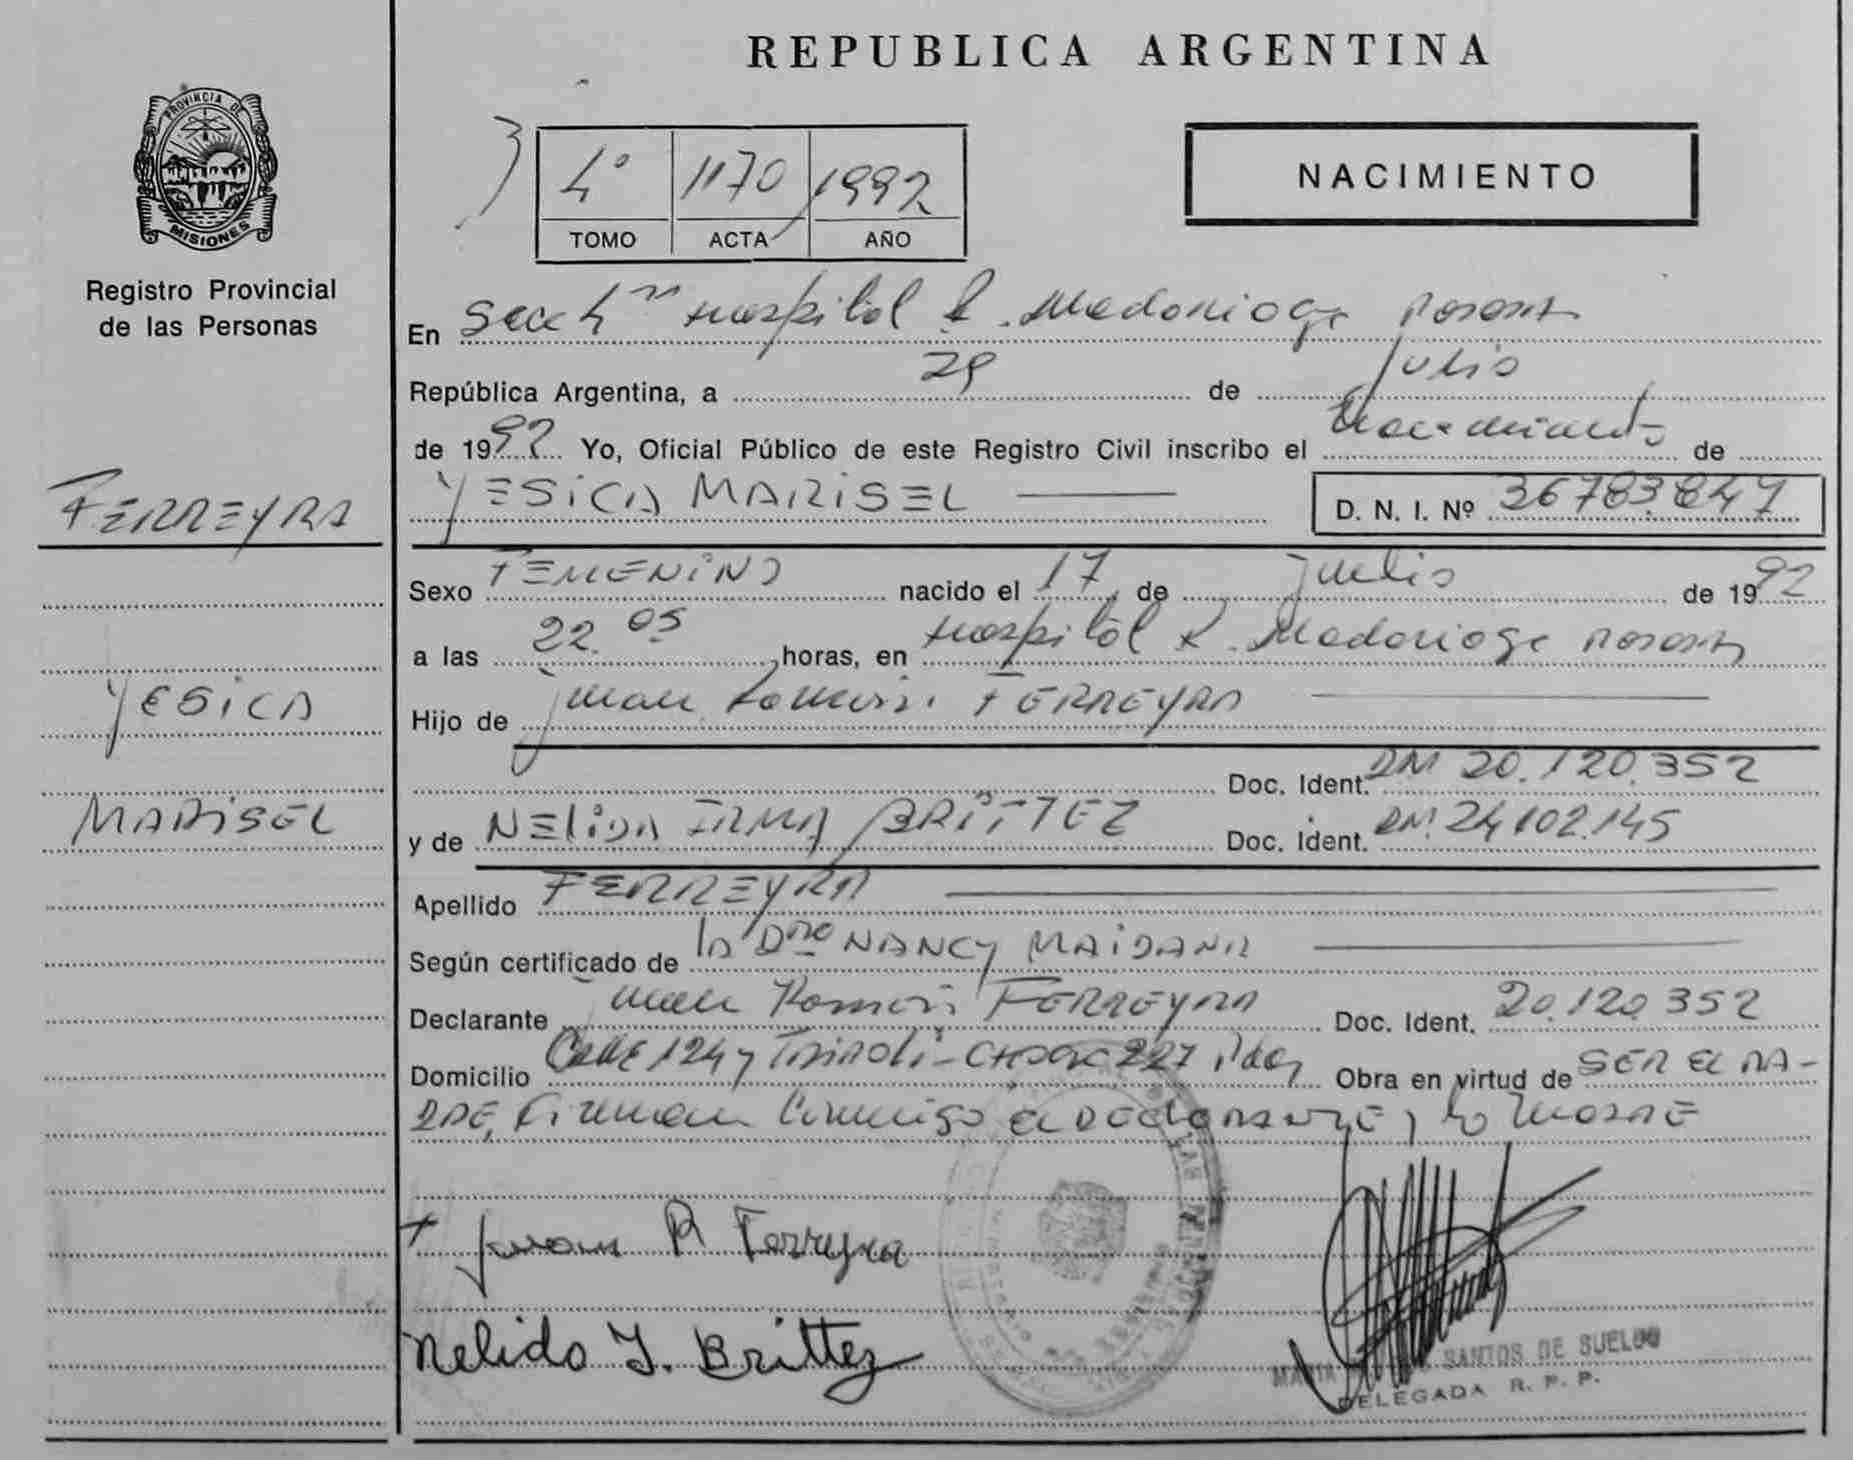 REPUBLICA ARGENTINA
PROVINCIA DE
MISIONES
Registro Provincial
de las Personas
4° 1170 1992
TOMO ACTA AÑO
NACIMIENTO
En Secc 4ta Hospital R. Madariaga Posadas
República Argentina, a 29 de Julio
de 1992 Yo, Oficial Público de este Registro Civil inscribo el Nacimiento de
YESICA MARISEL D. N. I. Nº 36.783.847
FERREYRA
YESICA
MARISEL
Sexo FEMENINO nacido el 17 de Julio de 1992
a las 22.05 horas, en Hospital R. Madariaga Posadas
Hijo de Juan Ramón FERREYRA
Doc. Ident. DNI 20.120.352
y de NELIDA IRMA BRITTEZ Doc. Ident. DNI 24.102.145
Apellido FERREYRA
Según certificado de la Dra NANCY MAIDANA
Declarante Juan Ramón FERREYRA Doc. Ident. 20.120.352
Domicilio Calle 124 y - Chacra 227 Pdas Obra en virtud de SER EL PA-
DRE, Firman Conmigo el DECLARANTE y la MADRE
Juan R Ferreyra
Nelida I. Brittez
MARIA SANTOS DE SUELDO
DELEGADA R. P. P.